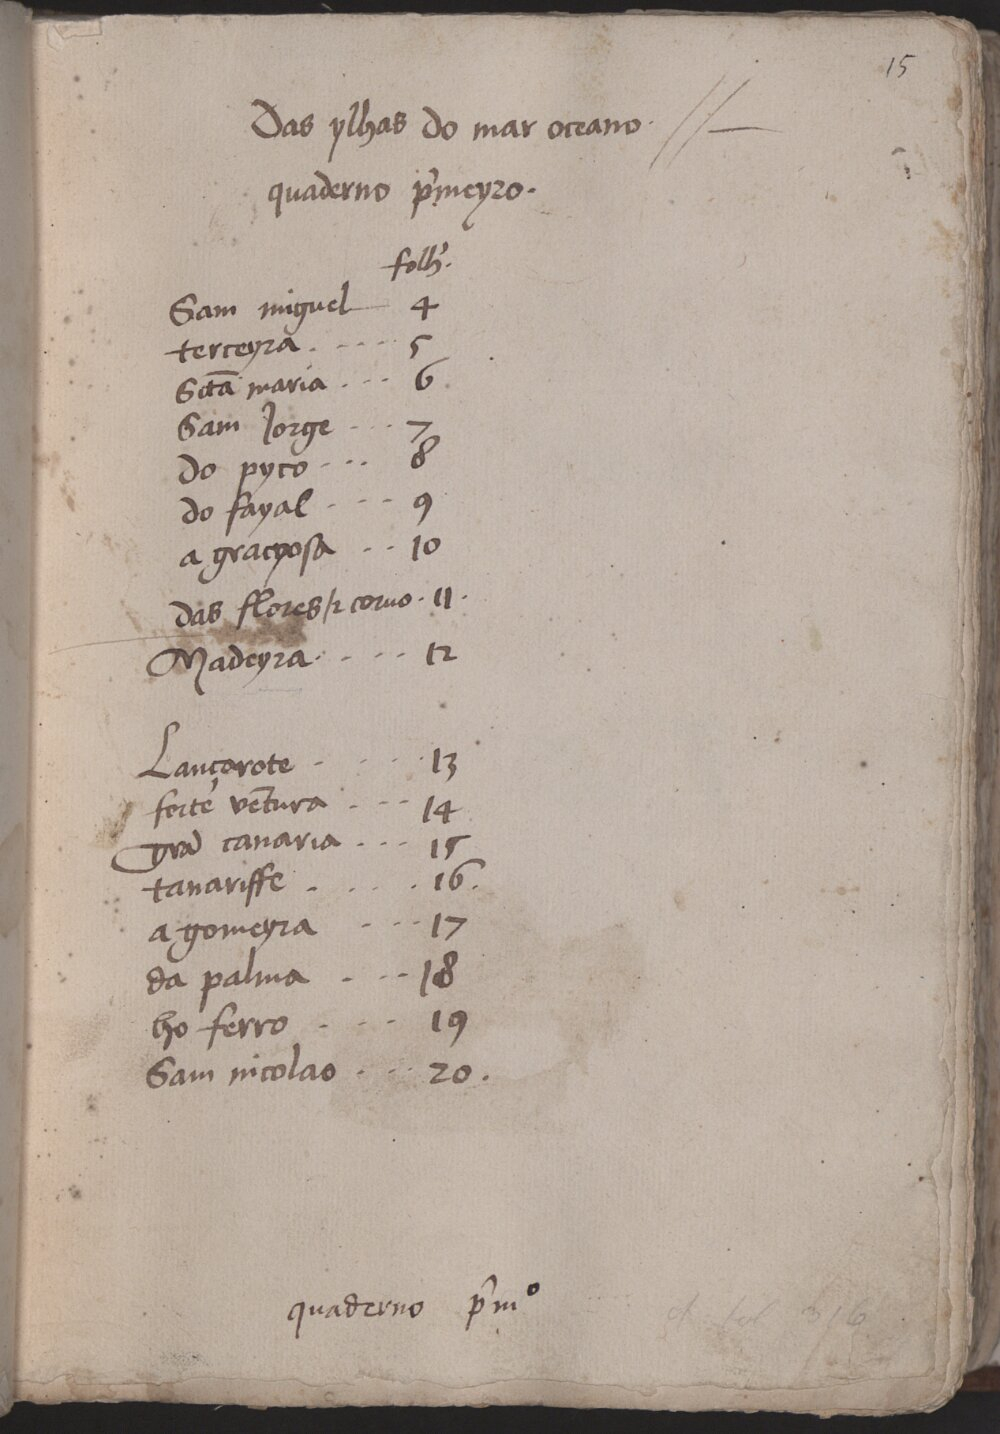 15
Das ylhas do mar oceano.
quaderno p̃meyro.
folh̃.
Sam miguel 4
terceyra . - - - - 5
Sctã maria . - - 6
Sam Jorge - - - 7
do pyco - - - 8
do fayal - - - 9
a gracyosa - - 10
das flores / r coruo . 11 .
Madeyra . . - - - 12
Lançorote - - - - 13
forte vẽtura . - - - 14
grã canaria . - - - 15
tanariffe . . - - . 16 .
a gomeyra - - - 17
da palma . - - - 18
ho ferro . - - 19
Sam nicolao . - - - 20 .
quaderno p̃mº
316